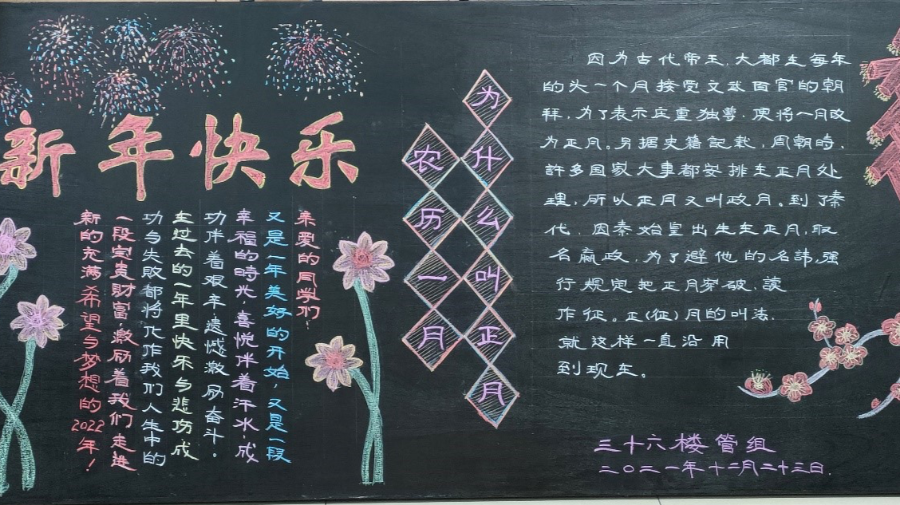 新年快乐
亲爱的同学们:
又是一年美好的开始,又是一段
幸福的时光,喜悦伴着汗水,成
功伴着艰辛,遗憾激励奋斗。
在过去的一年里快乐与悲伤成
功与失败都将化作我们人生中的
一段宝贵财富,激励着我们走进
新的充满希望与梦想的2022年!
农历一月
为什么叫正月
因为古代帝王,大都在每年
的头一个月接受文武百官的朝
拜,为了表示庄重独尊,便将一月改
为正月。另据史籍记载,周朝时,
許多国家大事都安排在正月处
理,所以正月又叫政月。到了秦
代,因秦始皇出生在正月,取
名嬴政,为了避他的名諱,强
行规定把正月穿破,讀
作征。正(征)月的叫法,
就这样一直沿用
到现在。
三十六楼管组
二〇二一年十二月二十三日.